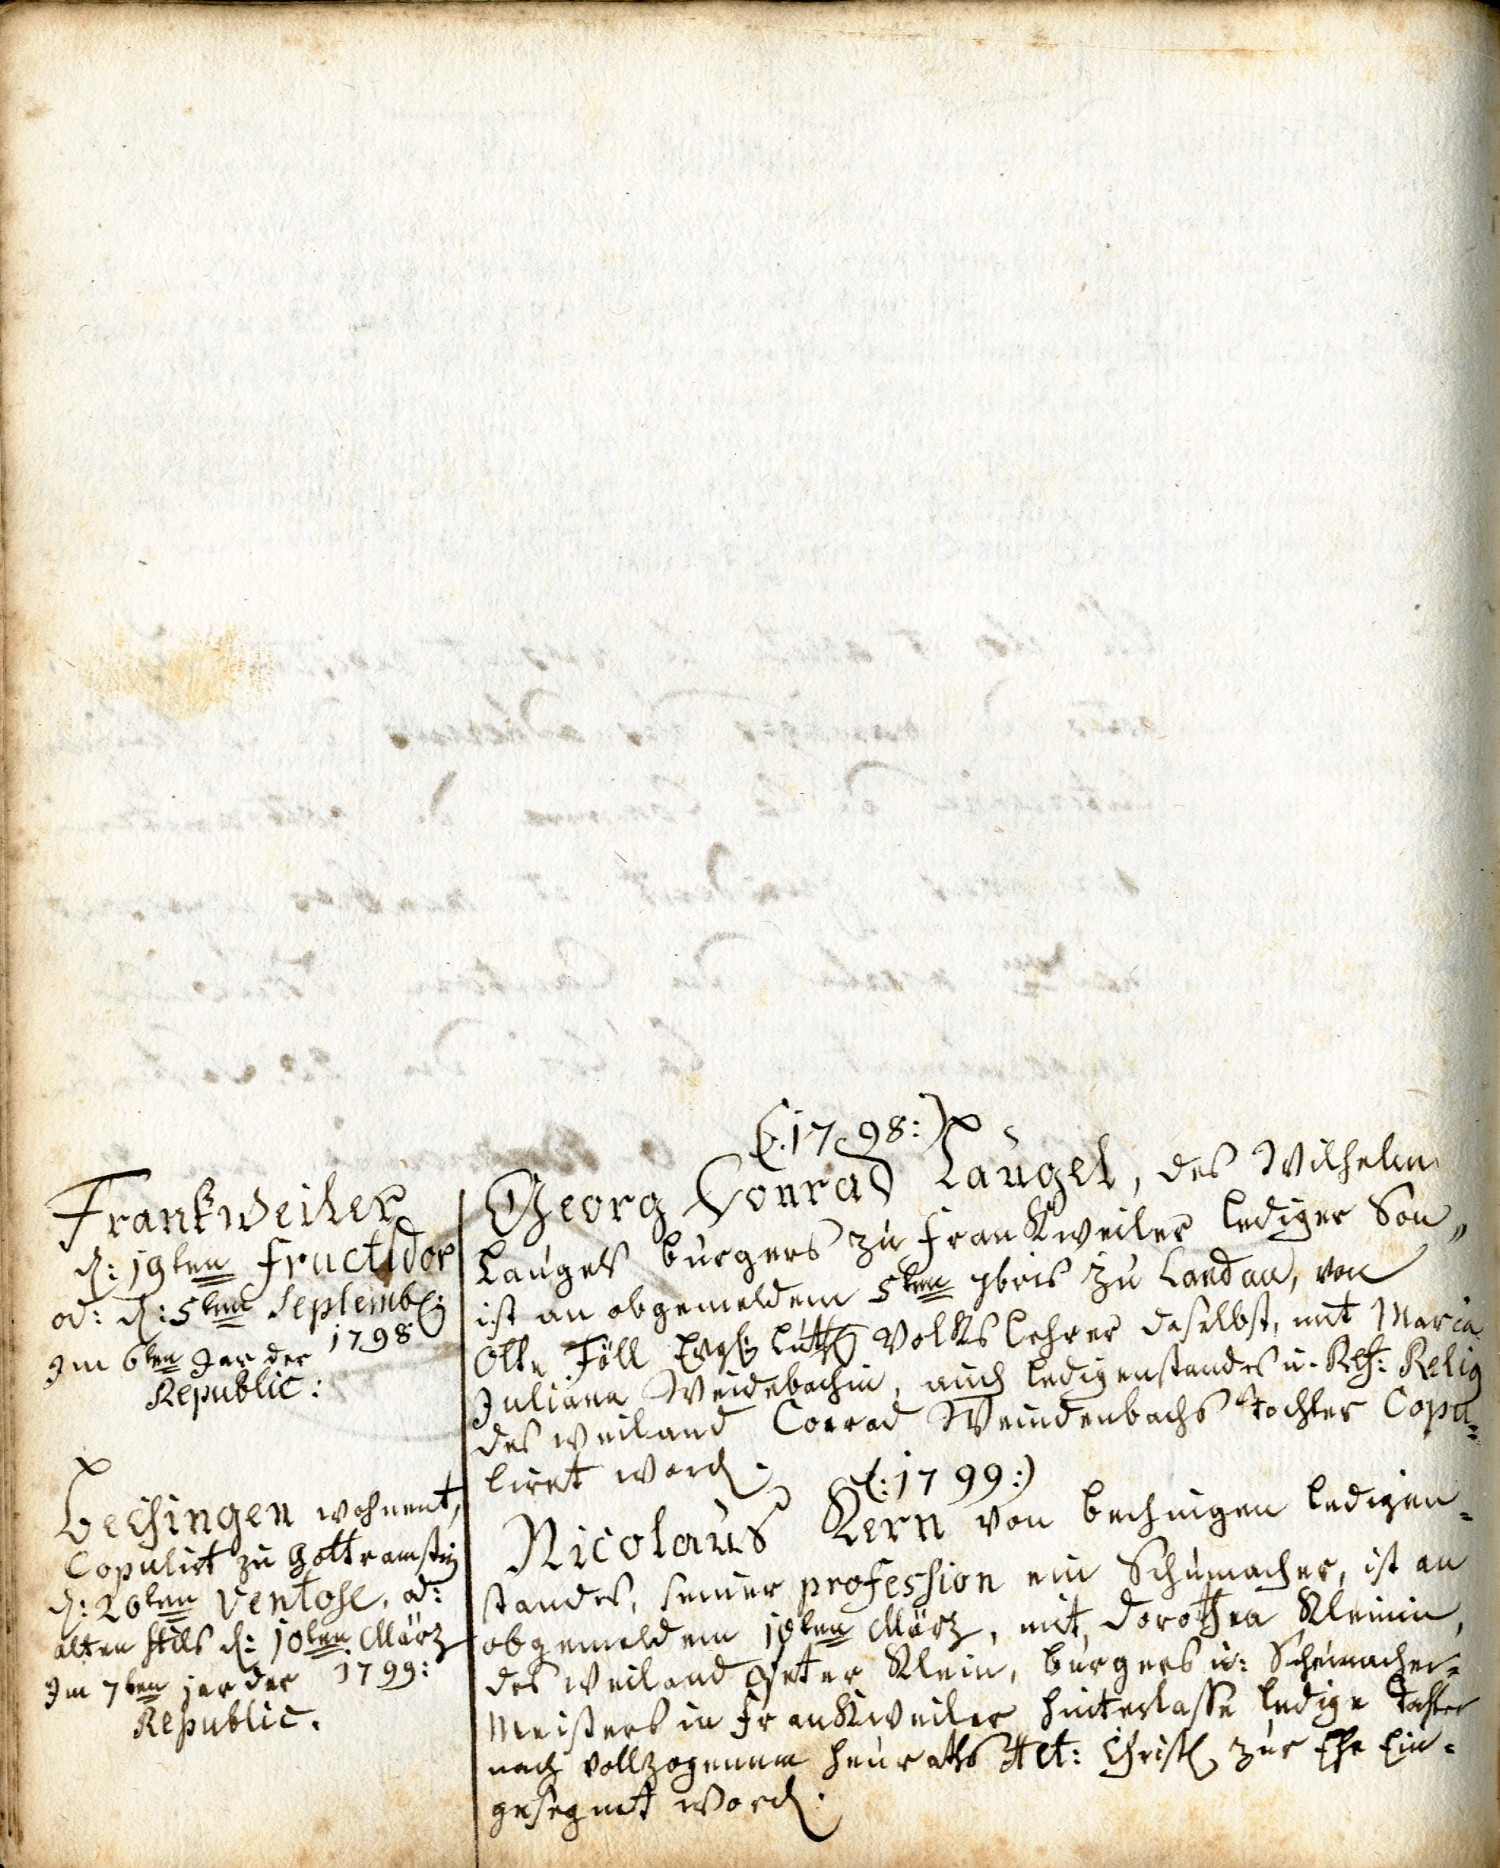 (:1798:)
Frankweiler
d: 19ten Fructidor
od: d: 5ten Septembr:
1798
Im 6ten Jar der
Republic:
Georg Conrad Laugel, des Wilhelm
Laugels burgers zu Frankweiler lediger Son,
ist an obgemeldem 5ten 7bris zu Landau, von
Otto Föll Evg: Luth: Volkslehrer daselbst, mit Maria
Juliana Weidebachin, auch ledigenstandes u. Ref: Relig
des weiland Conrad Weindenbachs tochter Copu=
lirt word.
(:1799:)
Bechingen wohnent,
Copulirt zu Gottramstein
d: 20ten Ventose, od:
alten stils d: 10ten März
1799:
Im 7ten jar der
Republic.
Nicolaus Kern von bechingen ledigen=
standes, seiner profession ein Schumacher, ist an
obgemeldem 10ten März, mit Dorothea Kleinin,
des weiland Peter Klein, burgers u: Schumacher=
Meisters in Frankweiler hinterlasse ledige Tochter
nach vollzogenem heuraths Act: Christl zur Ehe Ein=
gesegnet word.